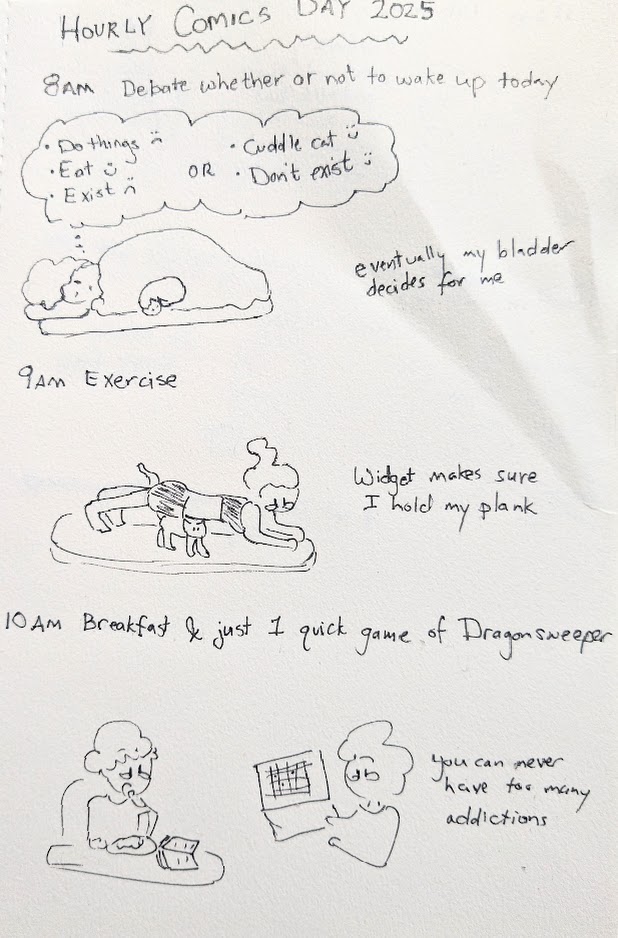 HOURLY COMICS DAY 2025
8AM Debate whether or not to wake up today
• Do things :(
• Eat :)
• Exist :(
OR
• Cuddle cat :)
• Don't exist :)
eventually my bladder
decides for me
9AM Exercise
Widget makes sure
I hold my plank
10AM Breakfast & just 1 quick game of Dragonsweeper
you can never
have too many
addictions